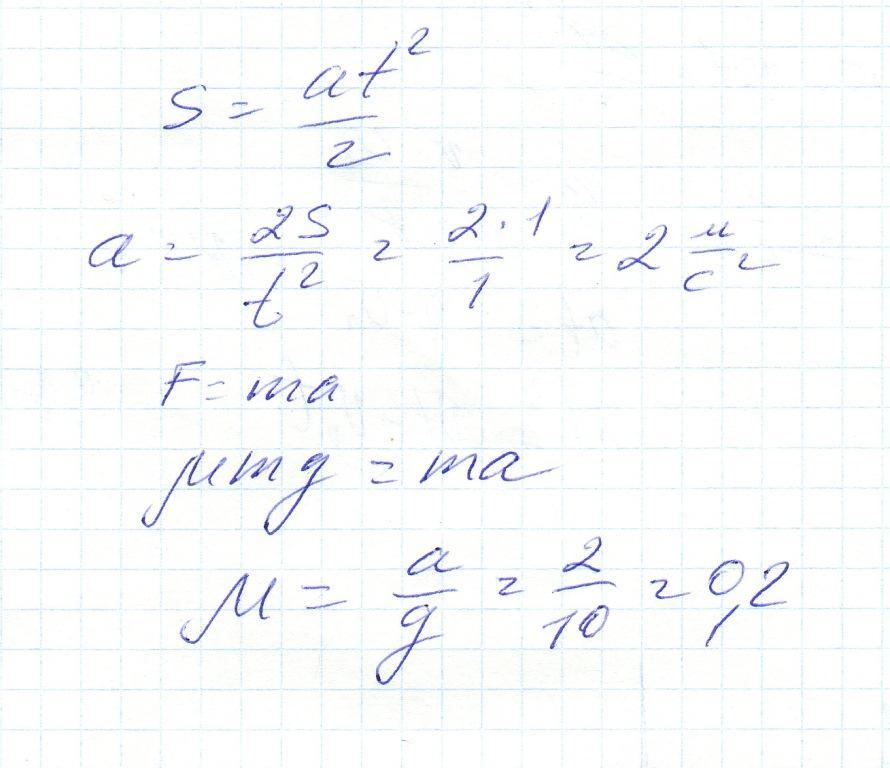 S = at²/2
a = 2S/t² = 2·1/1 = 2 м/с²
F = ma
μmg = ma
μ = a/g = 2/10 = 0,2